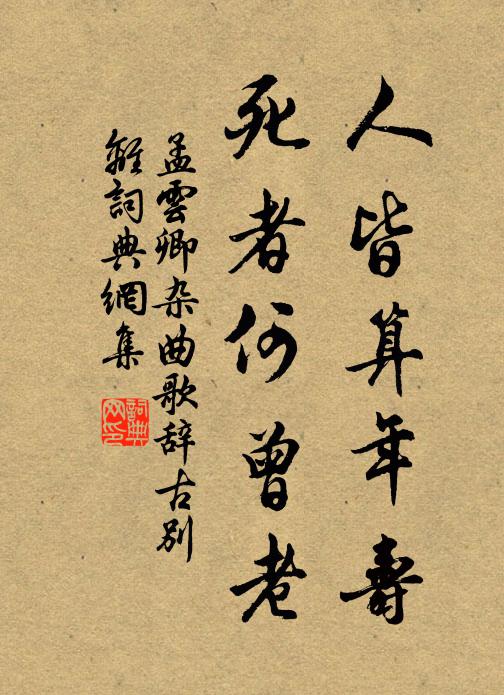 人皆算年壽
死者何曾老
孟雲卿杂曲歌辞古别
離詞典網集
詞典
网印